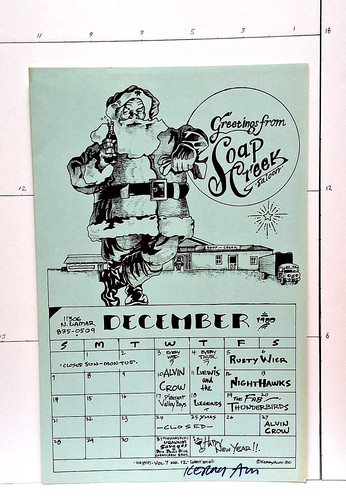 11 9 7 5 3 1 18
12 12
13 6
Greetings from
Soap
Creek
Saloon
SOAP CREEK
11306
N. LAMAR
835-0509
DECEMBER 1980
S M T W T F S
1 2 3 EVERY WED. 4 EVERY THUR. 5 6
CLOSED SUN-MON-TUE. RUSTY WIER
7 8 9 10 ALVIN CROW 11 LEWIS and the LEGENDS 12 13 NIGHTHAWKS
14 15 16 17 Pleasant Valley Boys 18 19 THE FAB. 20
THUNDERBIRDS
21 22 23 24 25 XMAS 26 27 ALVIN CROW
-CLOSED-
28 29 30 31 HAPPY
NEW YEAR!!.
VOL. 7 NO. 12
© KERRY AWN 80
KERRY AWN